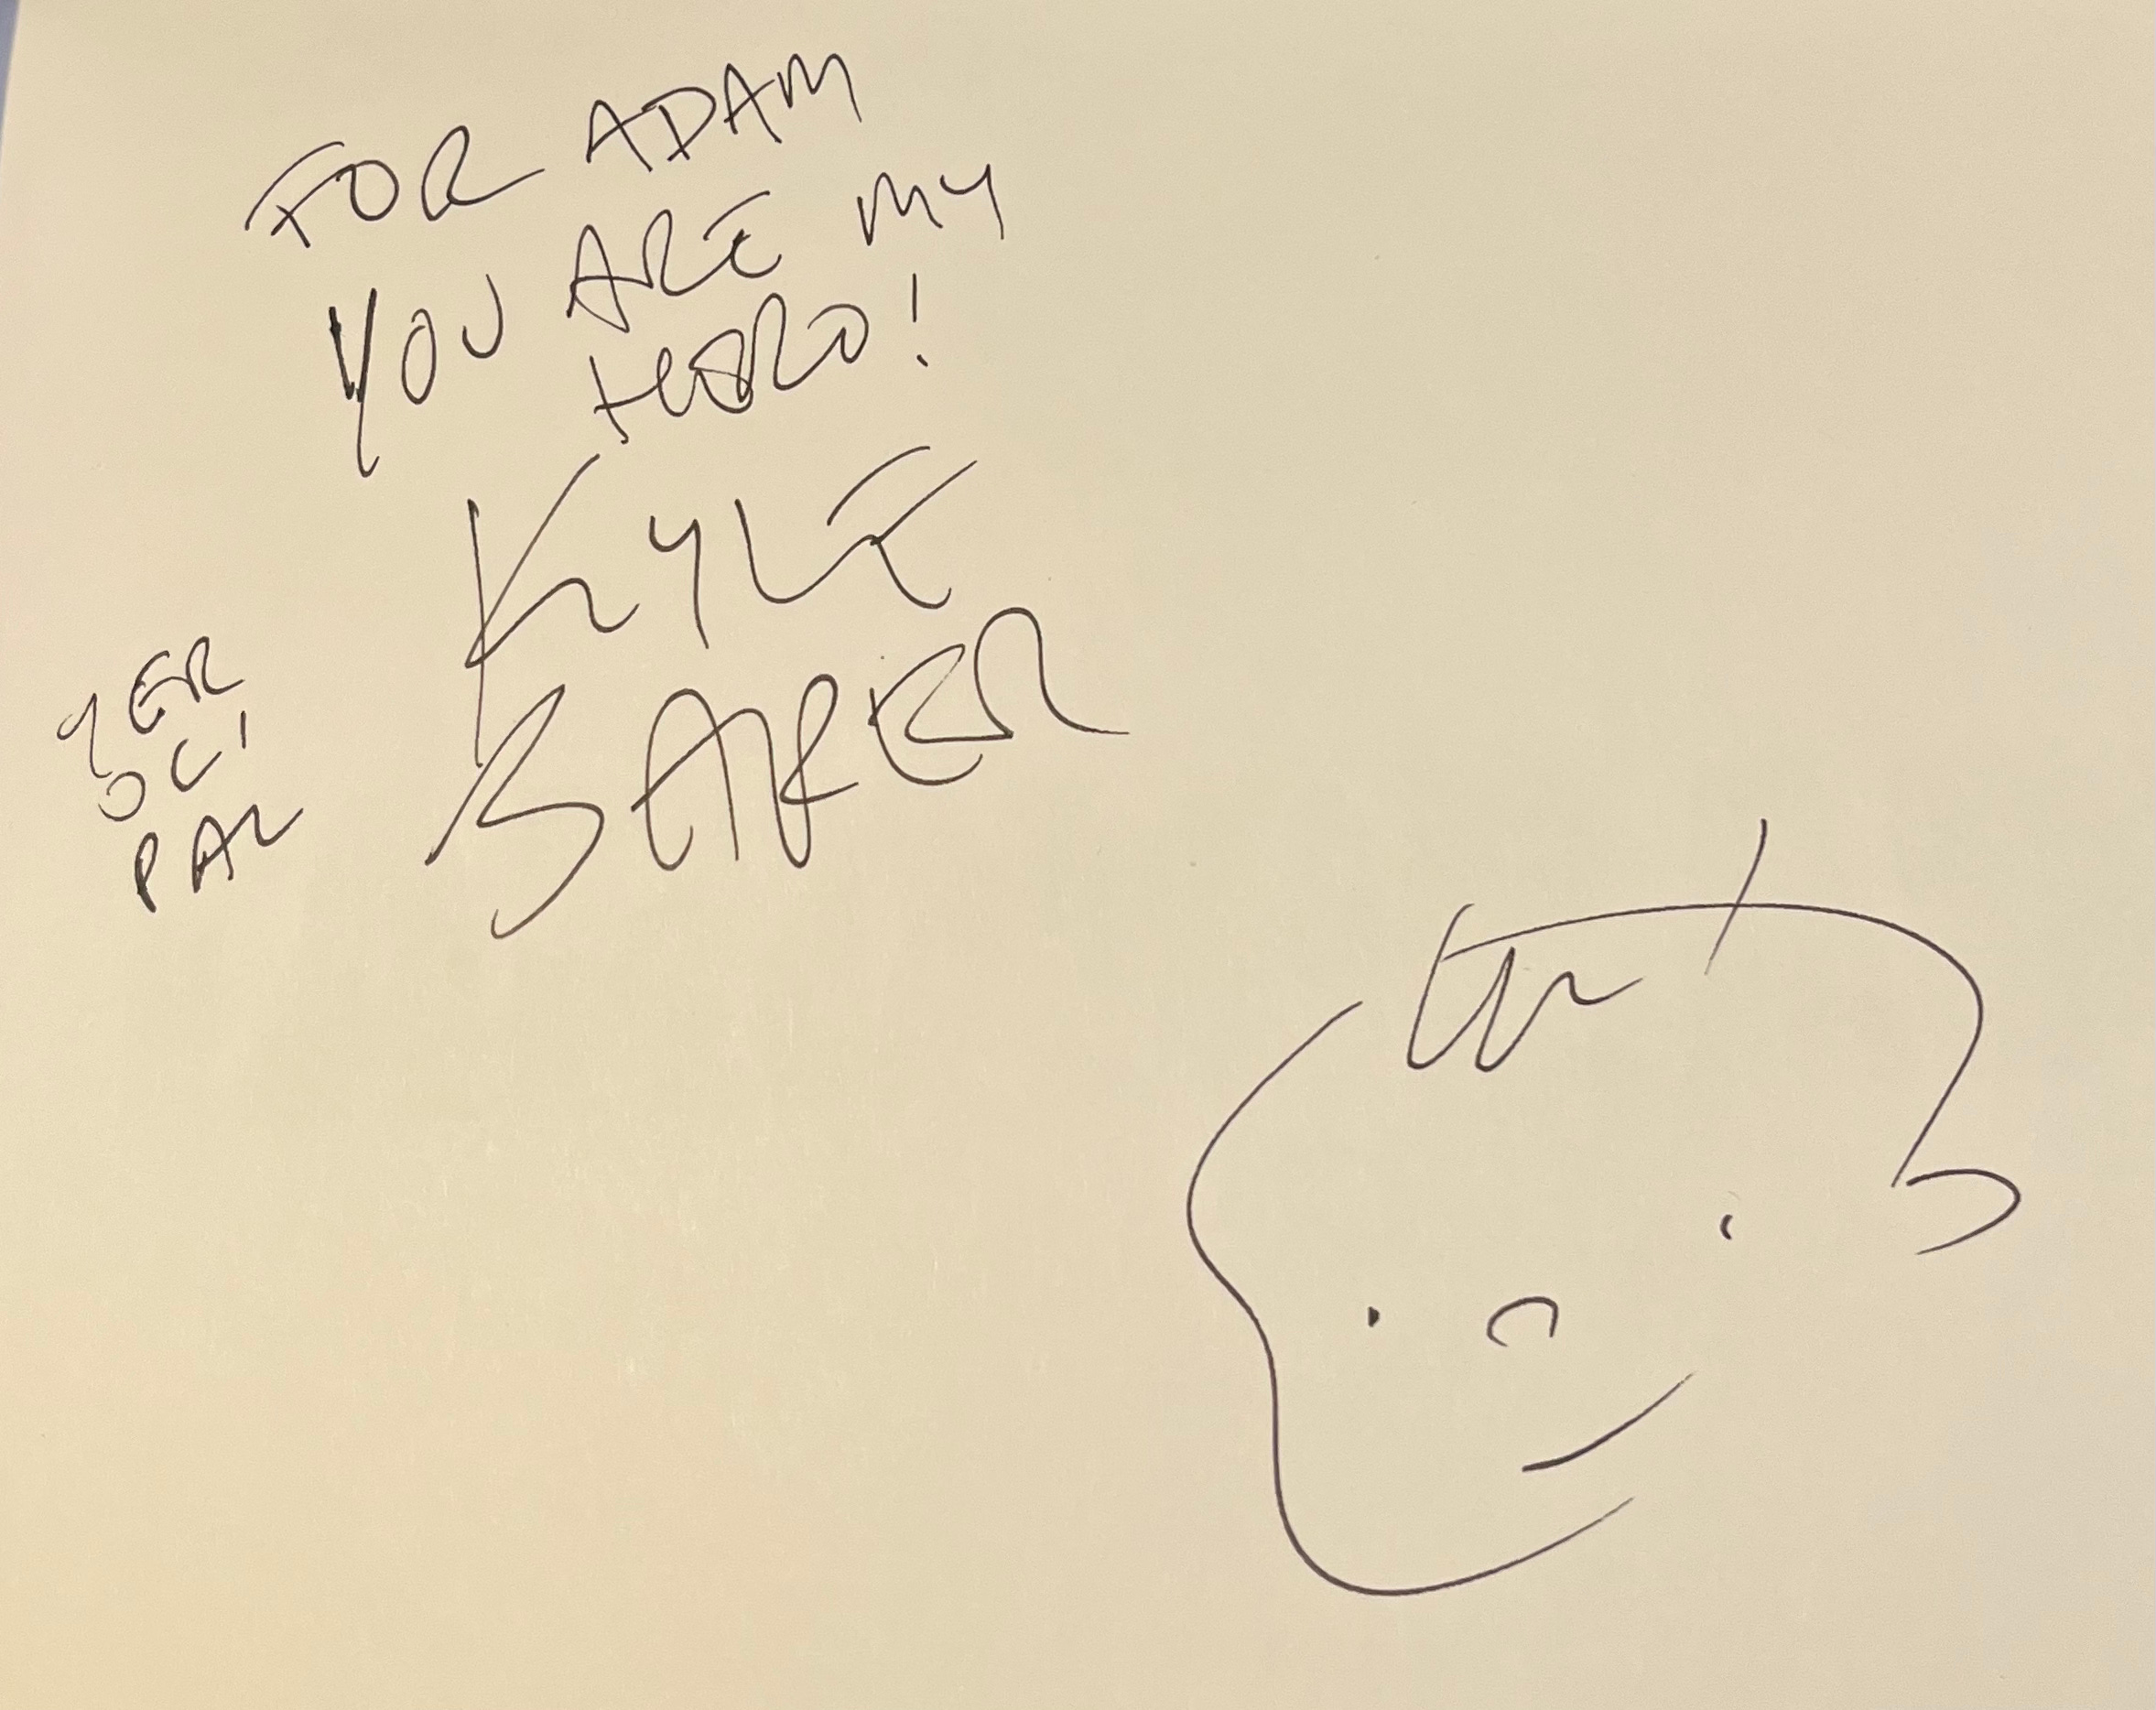 FOR ADAM
YOU ARE MY
HERO!
YER
OL'
PAL
KYLE
BAKER